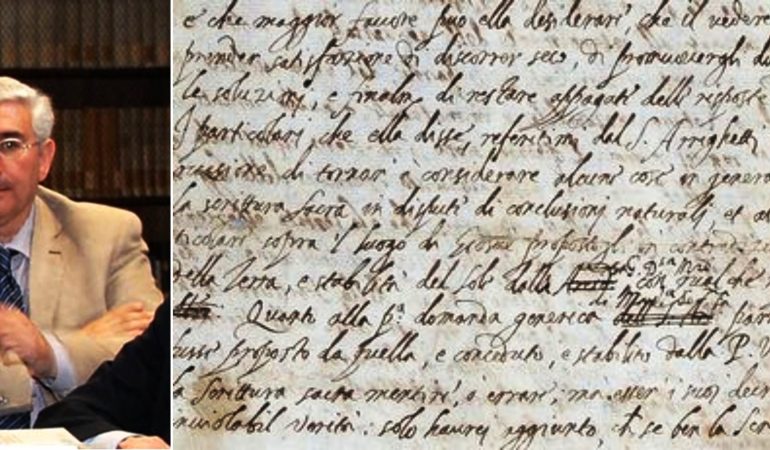 e che maggior favore puo ella desiderare, che il vedere
prender satisfazione di discorrer seco, di promuovergli du
le soluzioni, e finalm. di restare appagati delle risposte
I particolari, che ella disse, referitimi dal S. Arrighetti
casione di tornare à considerare alcune cose in genera
la scrittura sacra in dispute di conclusioni naturali, et al
ticolare sopra 'l luogo di Giosue propostogli in contradi
della Terra, e stabilità del Sole dalla G. D.sa M.re con qualche
Quanto alla p.a domanda generica di M.ma Ser.ma par
fusse proposto da quella, e conceduto, e stabilito dalla P. V.
la Scrittura sacra mentire, o errare, ma esser i suoi decre
inviolabil verità: solo haurei aggiunto, ch. se ben la Scri